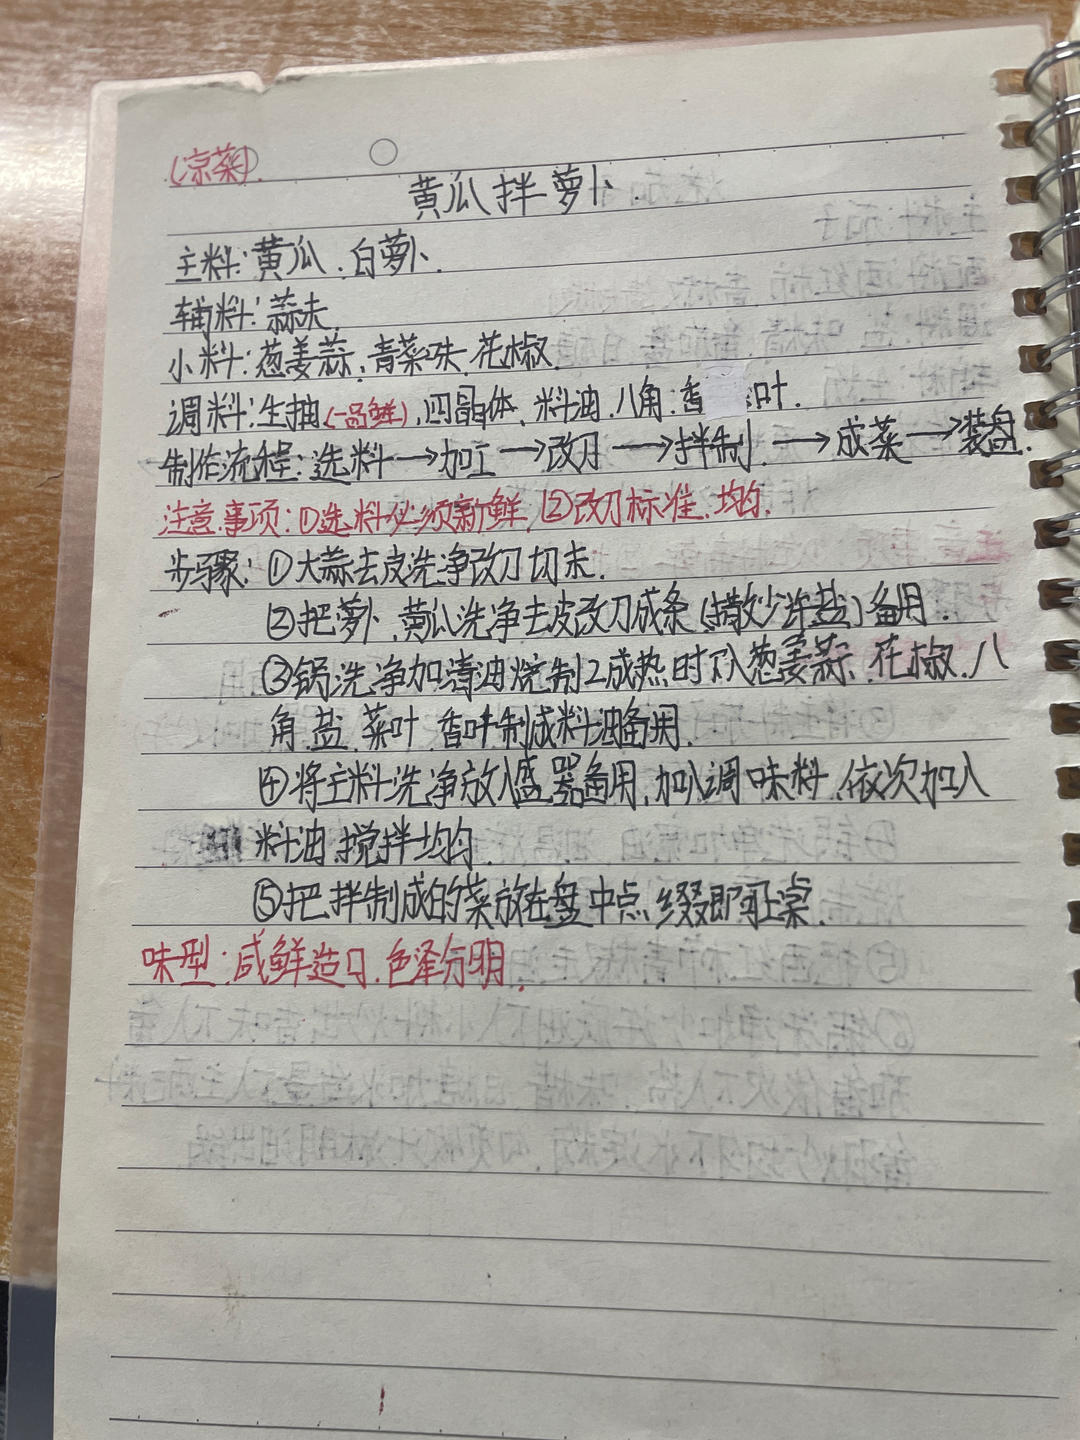 (凉菜).
黄瓜拌萝卜.
主料:黄瓜.白萝卜.
辅料:蒜末.
小料:葱姜蒜,青菜,花椒.
调料:生抽(一品鲜),四晶体.料油.八角.香 叶.
制作流程:选料→加工→改刀→拌制.→成菜→装盘.
注意事项:①选料必须新鲜.②改刀标准.均匀.
步骤:①大蒜去皮洗净改刀切末.
②把萝卜.黄瓜洗净去皮改刀成条(撒少许盐)备用.
③锅洗净加清油烧制2成热时下入葱姜蒜.花椒.八
角.盐.菜叶.香叶制成料油备用.
④将主料洗净放入盛器备用,加入调味料.依次加入
料油.搅拌均匀.
⑤把拌制成的菜放在盘中点缀即可上桌.
味型:咸鲜适口.色泽分明.